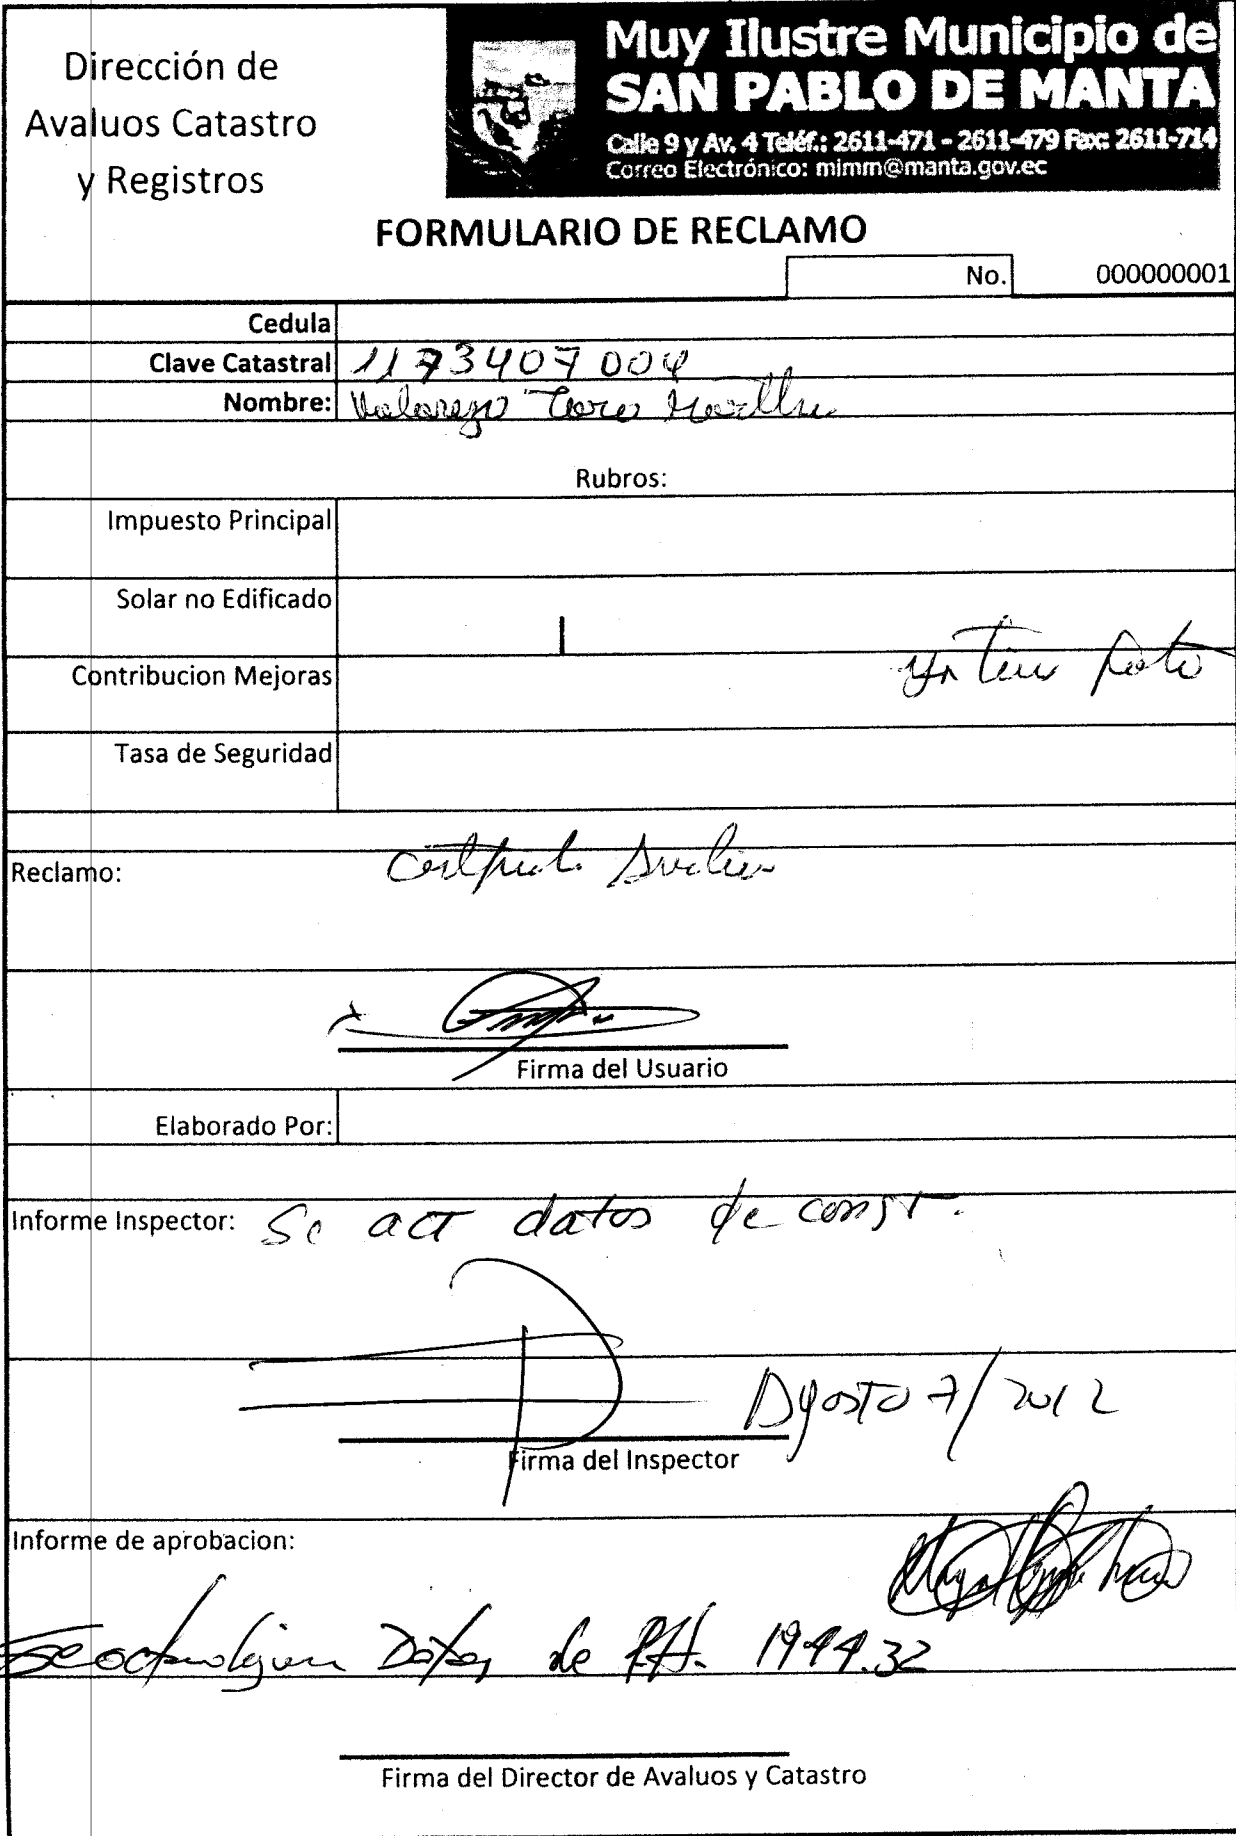 Dirección de
Avaluos Catastro
y Registros
Muy Ilustre Municipio de
SAN PABLO DE MANTA
Calle 9 y Av. 4 Teléf.: 2611-471 - 2611-479 Fax: 2611-714
Correo Electrónico: mimm@manta.gov.ec
FORMULARIO DE RECLAMO
No. 000000001
Cedula
Clave Catastral 1173407004
Nombre: Valarezo
Rubros:
Impuesto Principal
Solar no Edificado
Contribucion Mejoras
Tasa de Seguridad
Reclamo:
Firma del Usuario
Elaborado Por:
Informe Inspector: Se act datos de const.
Agosto 7/2012
Firma del Inspector
Informe de aprobacion:
Datos de P.H. 1944.32
Firma del Director de Avaluos y Catastro